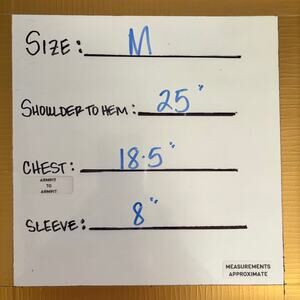 SIZE: M
SHOULDER TO HEM: 25"
CHEST: 18.5"
ARMPIT
TO
ARMPIT
SLEEVE: 8"
MEASUREMENTS
APPROXIMATE